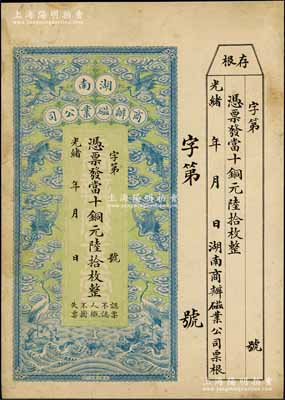 上海陽明拍賣
湖南
商辦磁業公司
字第 號
憑票發當十銅元陸拾枚整
光緒 年 月 日
認票不認人
不掛失票
字第 號
存根
字第 號
憑票發當十銅元陸拾枚整
光緒 年 月 日 湖南商辦磁業公司票根
上海陽明拍賣